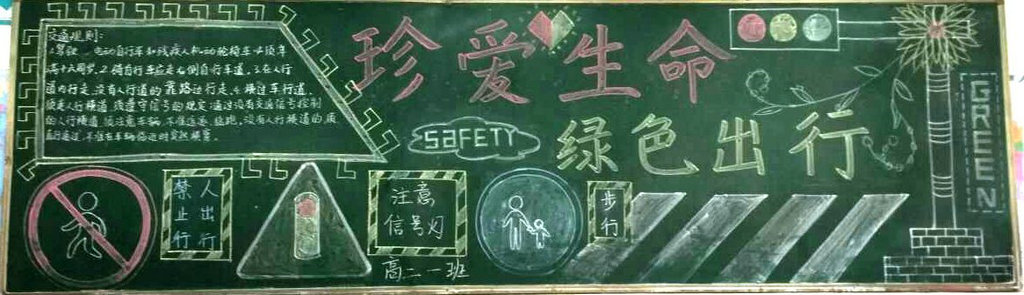 交通规则:
1.驾驶 电动自行车和残疾人机动轮椅车必须年
满十六周岁.2.骑自行车应走右侧自行车道.3.在人行
道内行走,没有人行道的靠路边行走.4.横过车行道,
须走人行横道.须遵守信号的规定.通过没有交通信号控制
的人行横道 须注意车辆,不准追逐 猛跑,没有人行横道的,须
直行通过,不准在车辆临近时突然横穿.
珍爱生命
绿色出行
SAFETY
GREEN
禁止行
人出行
注意
信号灯
步行
高二一班